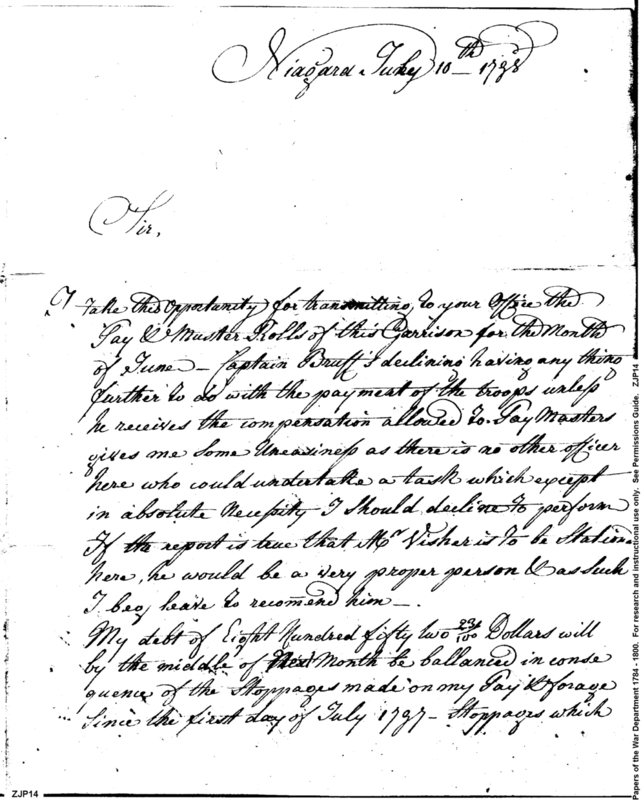 Niagara July 10th 1798
Sir,
I take this Opportunity for transmitting, to your Office the
Pay & Muster Rolls of this Garrison for the Month
of June – Captain Bruff's declining having any thing
further to do with the payment of the troops unless
he receives the compensation allowed to Pay Masters
gives me some Uneasiness as there is no other officer
here who could undertake a task which except
in absolute Necessity I should decline to perform
If the report is true that Mr Visher is to be Station
here, he would be a very proper person & as such
I beg leave to recomend him –.
My debt of Eight Hundred fifty two 23/100 Dollars will
by the middle of Next Month be ballanced in conse
quence of the Stoppages made on my Pay & forage
Since the first day of July 1797 – Stoppages which
ZJP14
Papers of the War Department 1784 - 1800. For research and instructional use only. See Permissions Guide. ZJP14